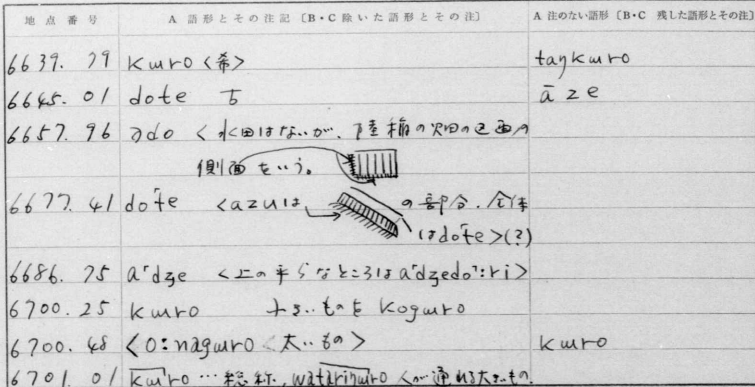 地点番号 A 語形とその注記〔B・C 除いた語形とその注〕 A 注のない語形〔B・C 残した語形とその注〕
6639. 79 kɯro <希> taŋkɯro
6645. 01 dote āze
6657. 96 ado <水田はないが、陸稲の畑の区画の
側面をいう。
6677. 41 dote <azuは の部分. 全体
はdote>(?)
6686. 75 a˹dʒe <上の平らなところはa˹dʒedo˺:ri>
6700. 25 kɯro ものを kogɯro
6700. 48 <o:nagɯro <太いもの> kɯro
6701. 01 kɯro … 総称, watariŋɯro 人が通れる大きいもの.